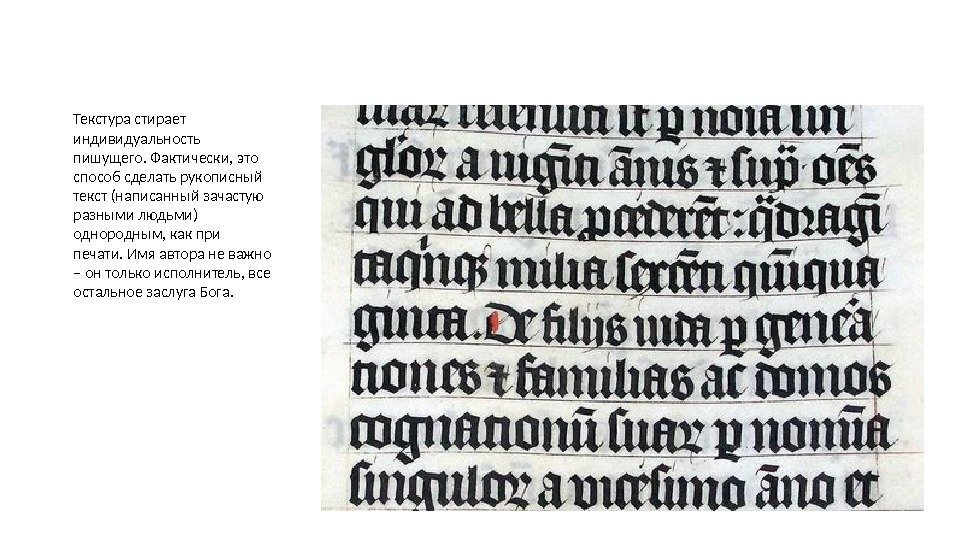 Текстура стирает
индивидуальность
пишущего. Фактически, это
способ сделать рукописный
текст (написанный зачастую
разными людьми)
однородным, как при
печати. Имя автора не важно
– он только исполнитель, все
остальное заслуга Бога.
suar recensiti st ꝑ noīa sin
gꝉoꝝ a uigīti ānis ⁊ sup̄· oēs
qui ad bella ꝓcederēt : q̄dragī
taq̇nqꝫ milia sexcēti qūiqua
ginta. De filijs iuda ꝑ genea
tiones ⁊ familias ac domos
cognationū suaꝝ ꝑ nomīa
singuloꝝ a vicesimo āno et